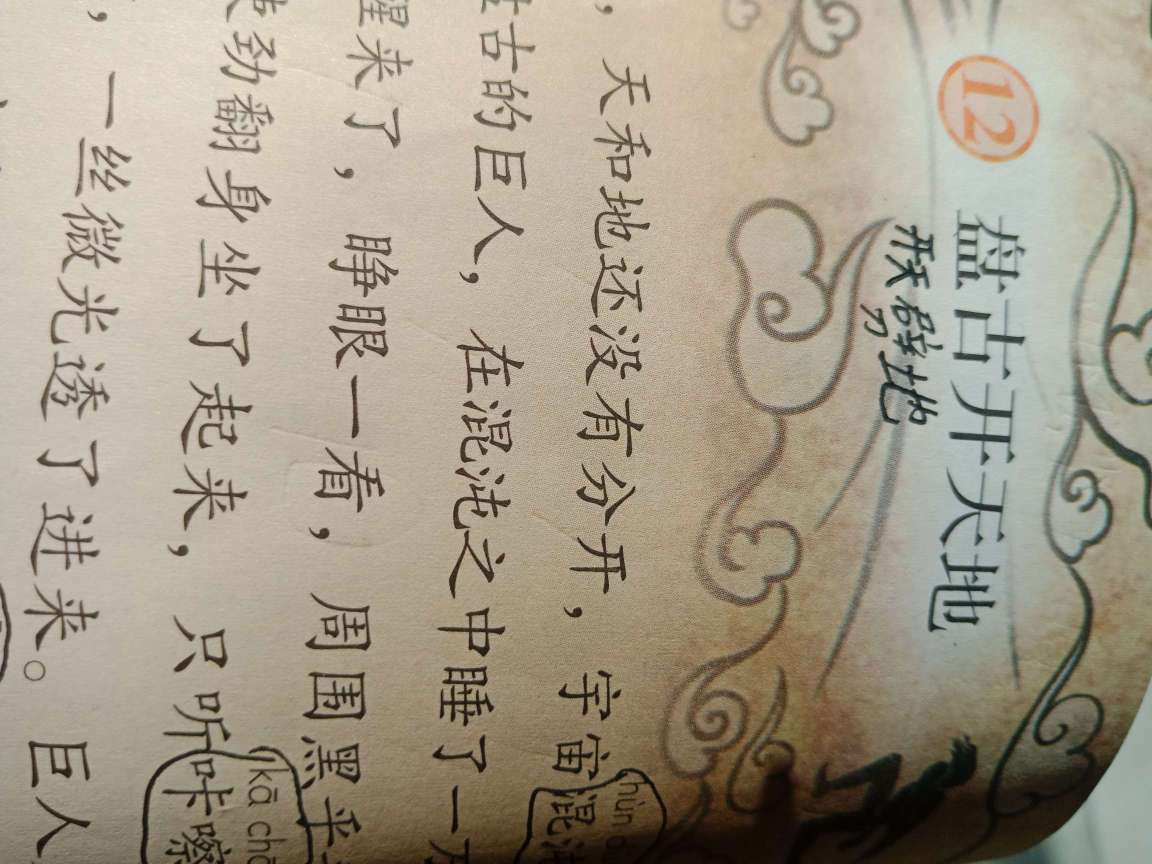 12 盘古开天地
开天辟地
，天和地还没有分开，宇宙混
古的巨人，在混沌之中睡了一
醒来了，睁眼一看，周围黑乎
使劲翻身坐了起来，只听咔嚓
kā
，一丝微光透了进来。巨人